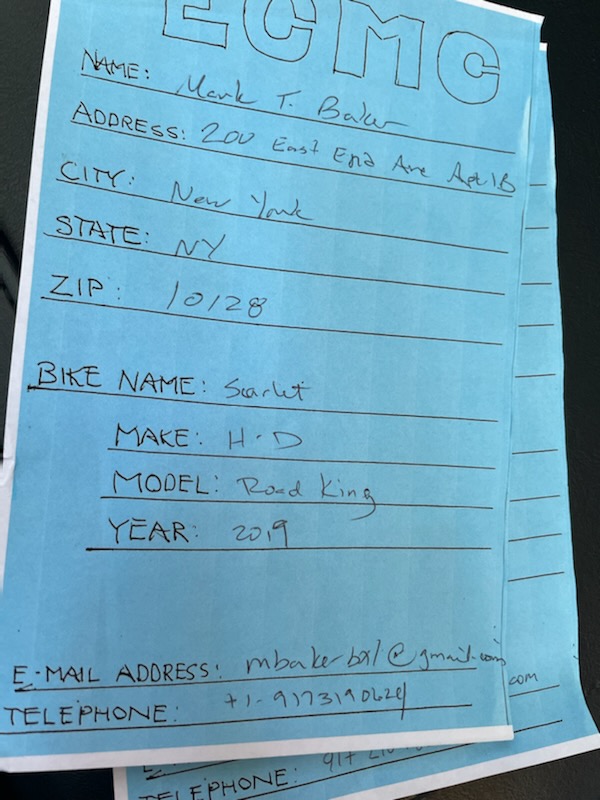 ECMC
NAME: Mark T. Baker
ADDRESS: 200 East End Ave Apt 1B
CITY: New York
STATE: NY
ZIP: 10128
BIKE NAME: Scarlet
MAKE: H-D
MODEL: Road King
YEAR: 2019
E-MAIL ADDRESS: @gmail.com
TELEPHONE:
com
TELEPHONE: 917